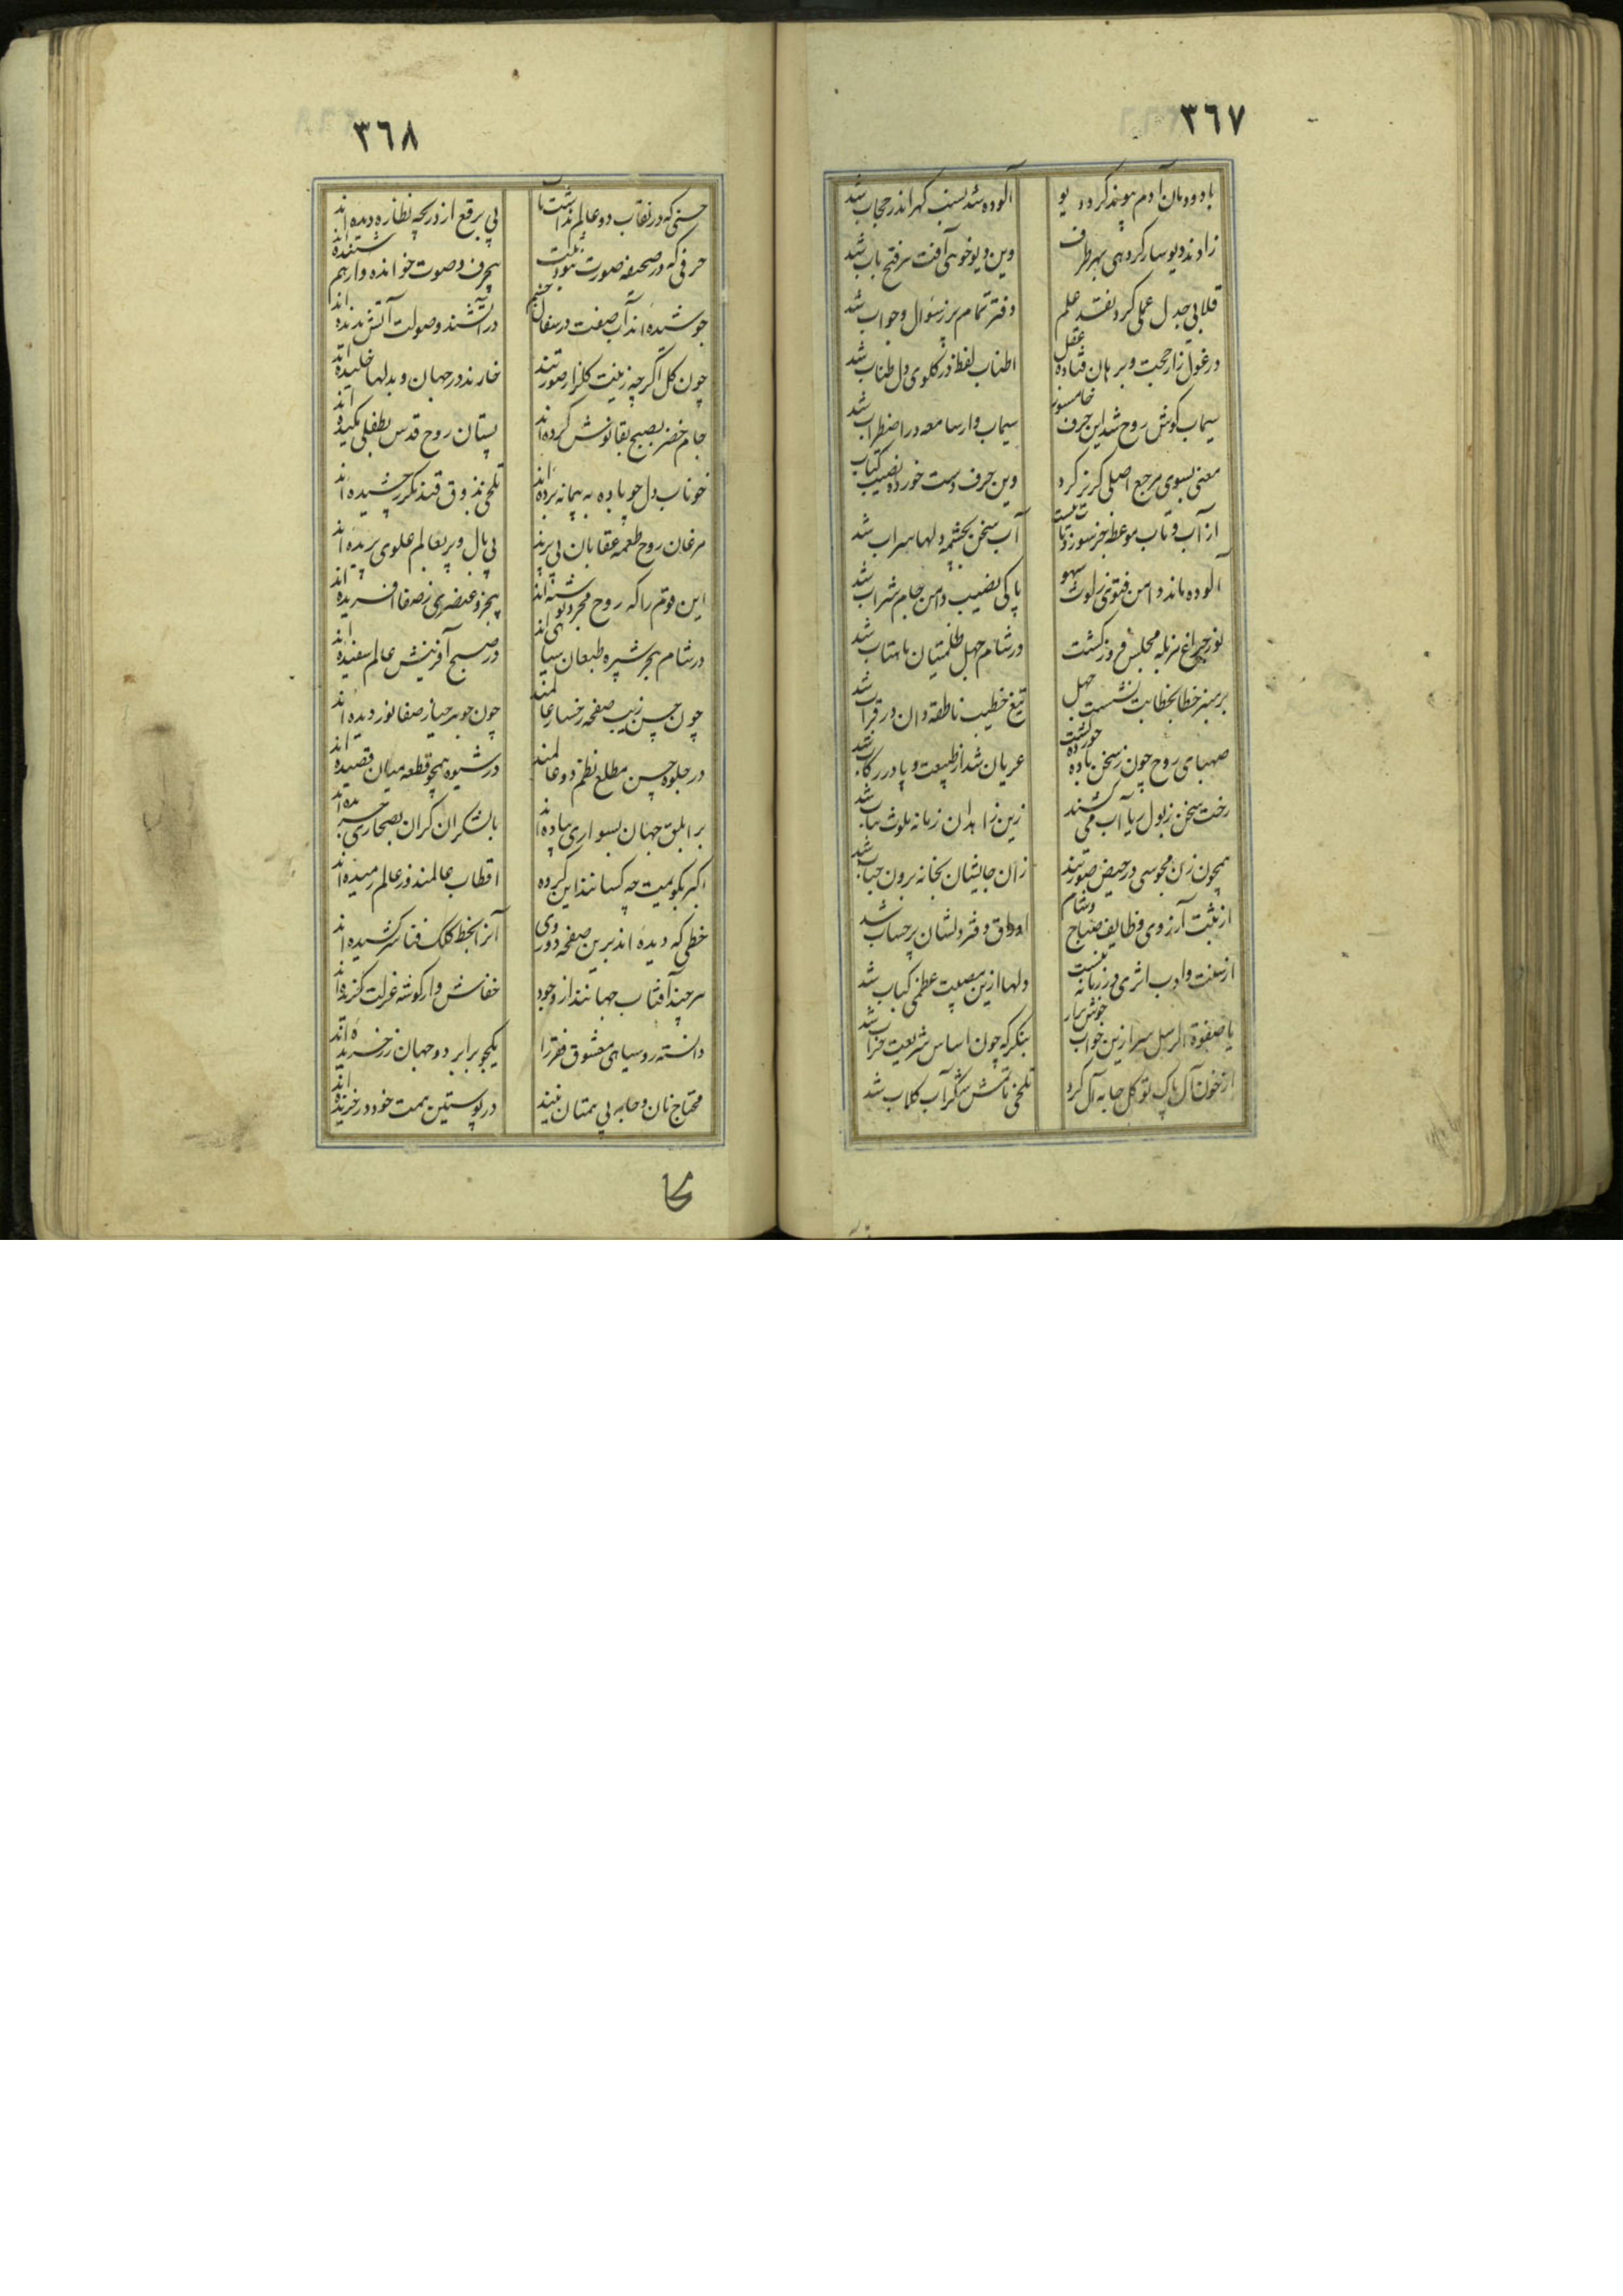 ٣٦٧
با دودمان آدم پیوند کرد دیو
آلوده شد نسب گهر اندر حجاب شد
زادند دیوسار گروهی بهر طرف
وین دیو خوهی آفت سر فتح باب شد
قلابی جدل عملی کرد نقد علم
دفتر تمام پر ز سؤال و جواب شد
در غول زار حجت و برهان فتاده عقل
اطناب لفظ در گلوی دل طناب شد
سیماب گوش روح شد این حرف
سیماب وار سامعه در اضطراب شد
معنی بسوی مرجع اصلی گریز کرد
وین حرف دست خورده نصیب کتاب
از آب و تاب موعظه جز سوز دل
آب سخن بچشمه دلها سراب شد
آلوده ماند دامن فتوی ز لوث سهو
پاکی نصیب دامن جام شراب شد
نور چراغ مزبله مجلس فروز گشت
در شام جهل ظلمتیان ماهتاب شد
بر منبر خطا بخطابت نشست جهل
تیغ خطیب ناطقه دان در قراب شد
صهبای روح چون ز سخن باده
عریان شد از طبیعت و پا در رکاب شد
رخت سخن ز بول ریا آب می کشند
زین زاهدان زمانه ملوث ثیاب شد
همچون زن مجوسی در حیض صورتند
زان جایشان بخانه برون
از ثبت آرزوی وظایف صباح و شام
اوراق دفتر دلشان پر حساب شد
از سنت و ادب اثری در زمانه نیست
دلها ازین مصیبت عظمی کباب شد
یا صفوة الرسل سر ازین خواب خوش برآر
بنگر که چون اساس شریعت خراب شد
از خون آل پاک تو گل جامه آل کرد
شکر آب گلاب شد
٣٦٨
حسنی که در نقاب دو عالم نداشت تا
بی برقع از دریچه نظاره دیده اند
حرفی که در صحیفه صورت نبود ثبت
بیحرف و صوت خوانده و از هم شنیده اند
جوشیده اند آب صفت در سفال
در آتشند و صولت آتش ندیده اند
چون گل اگرچه زینت گلزار صورتند
خارند در جهان و بدلها خلیده اند
جام خضر بصبح بقا نوش کرده اند
پستان روح قدس بطفلی مکیده اند
خوناب دل چو باده به پیمانه برده اند
تلخی بذوق قند مکرر چشیده اند
مرغان روح طعمه عقابان بی پرند
بی بال و پر بعالم علوی پریده اند
این قوم را که روح مجرد نوشته اند
بیجز و عنصری ز صفا آفریده اند
در شام بحر شپره طبعان سیاهی اند
در صبح آفرینش عالم سفیده اند
چون حسن زیب صفحه رخسار عالمند
چون جوهر حیا ز صفا نور دیده اند
در جلوه حسن مطلع نظم دو عالمند
در شیوه همچو قطعه میان قصیده اند
بر ابلق جهان بسواری پیاده اند
بالشگران گران بصحاری
اکبر بگویمت چه کسانند این گروه
اقطاب عالمند و ز عالم رمیده اند
خطی که دیده اند برین صفحه دوروی
آنرا بخط کلک فنا سر کشیده اند
هر چند آفتاب جهانند از وجود
خفاش وار گوشه عزلت گزیده اند
دانسته روسیاهی معشوق فقر را
یکجو برابر دو جهان زر خریده اند
محتاج نان و جامه بی همتان نیند
در پوستین همت خود در خزیده اند